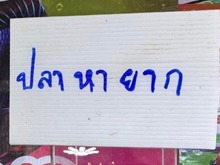 ปลาหายาก